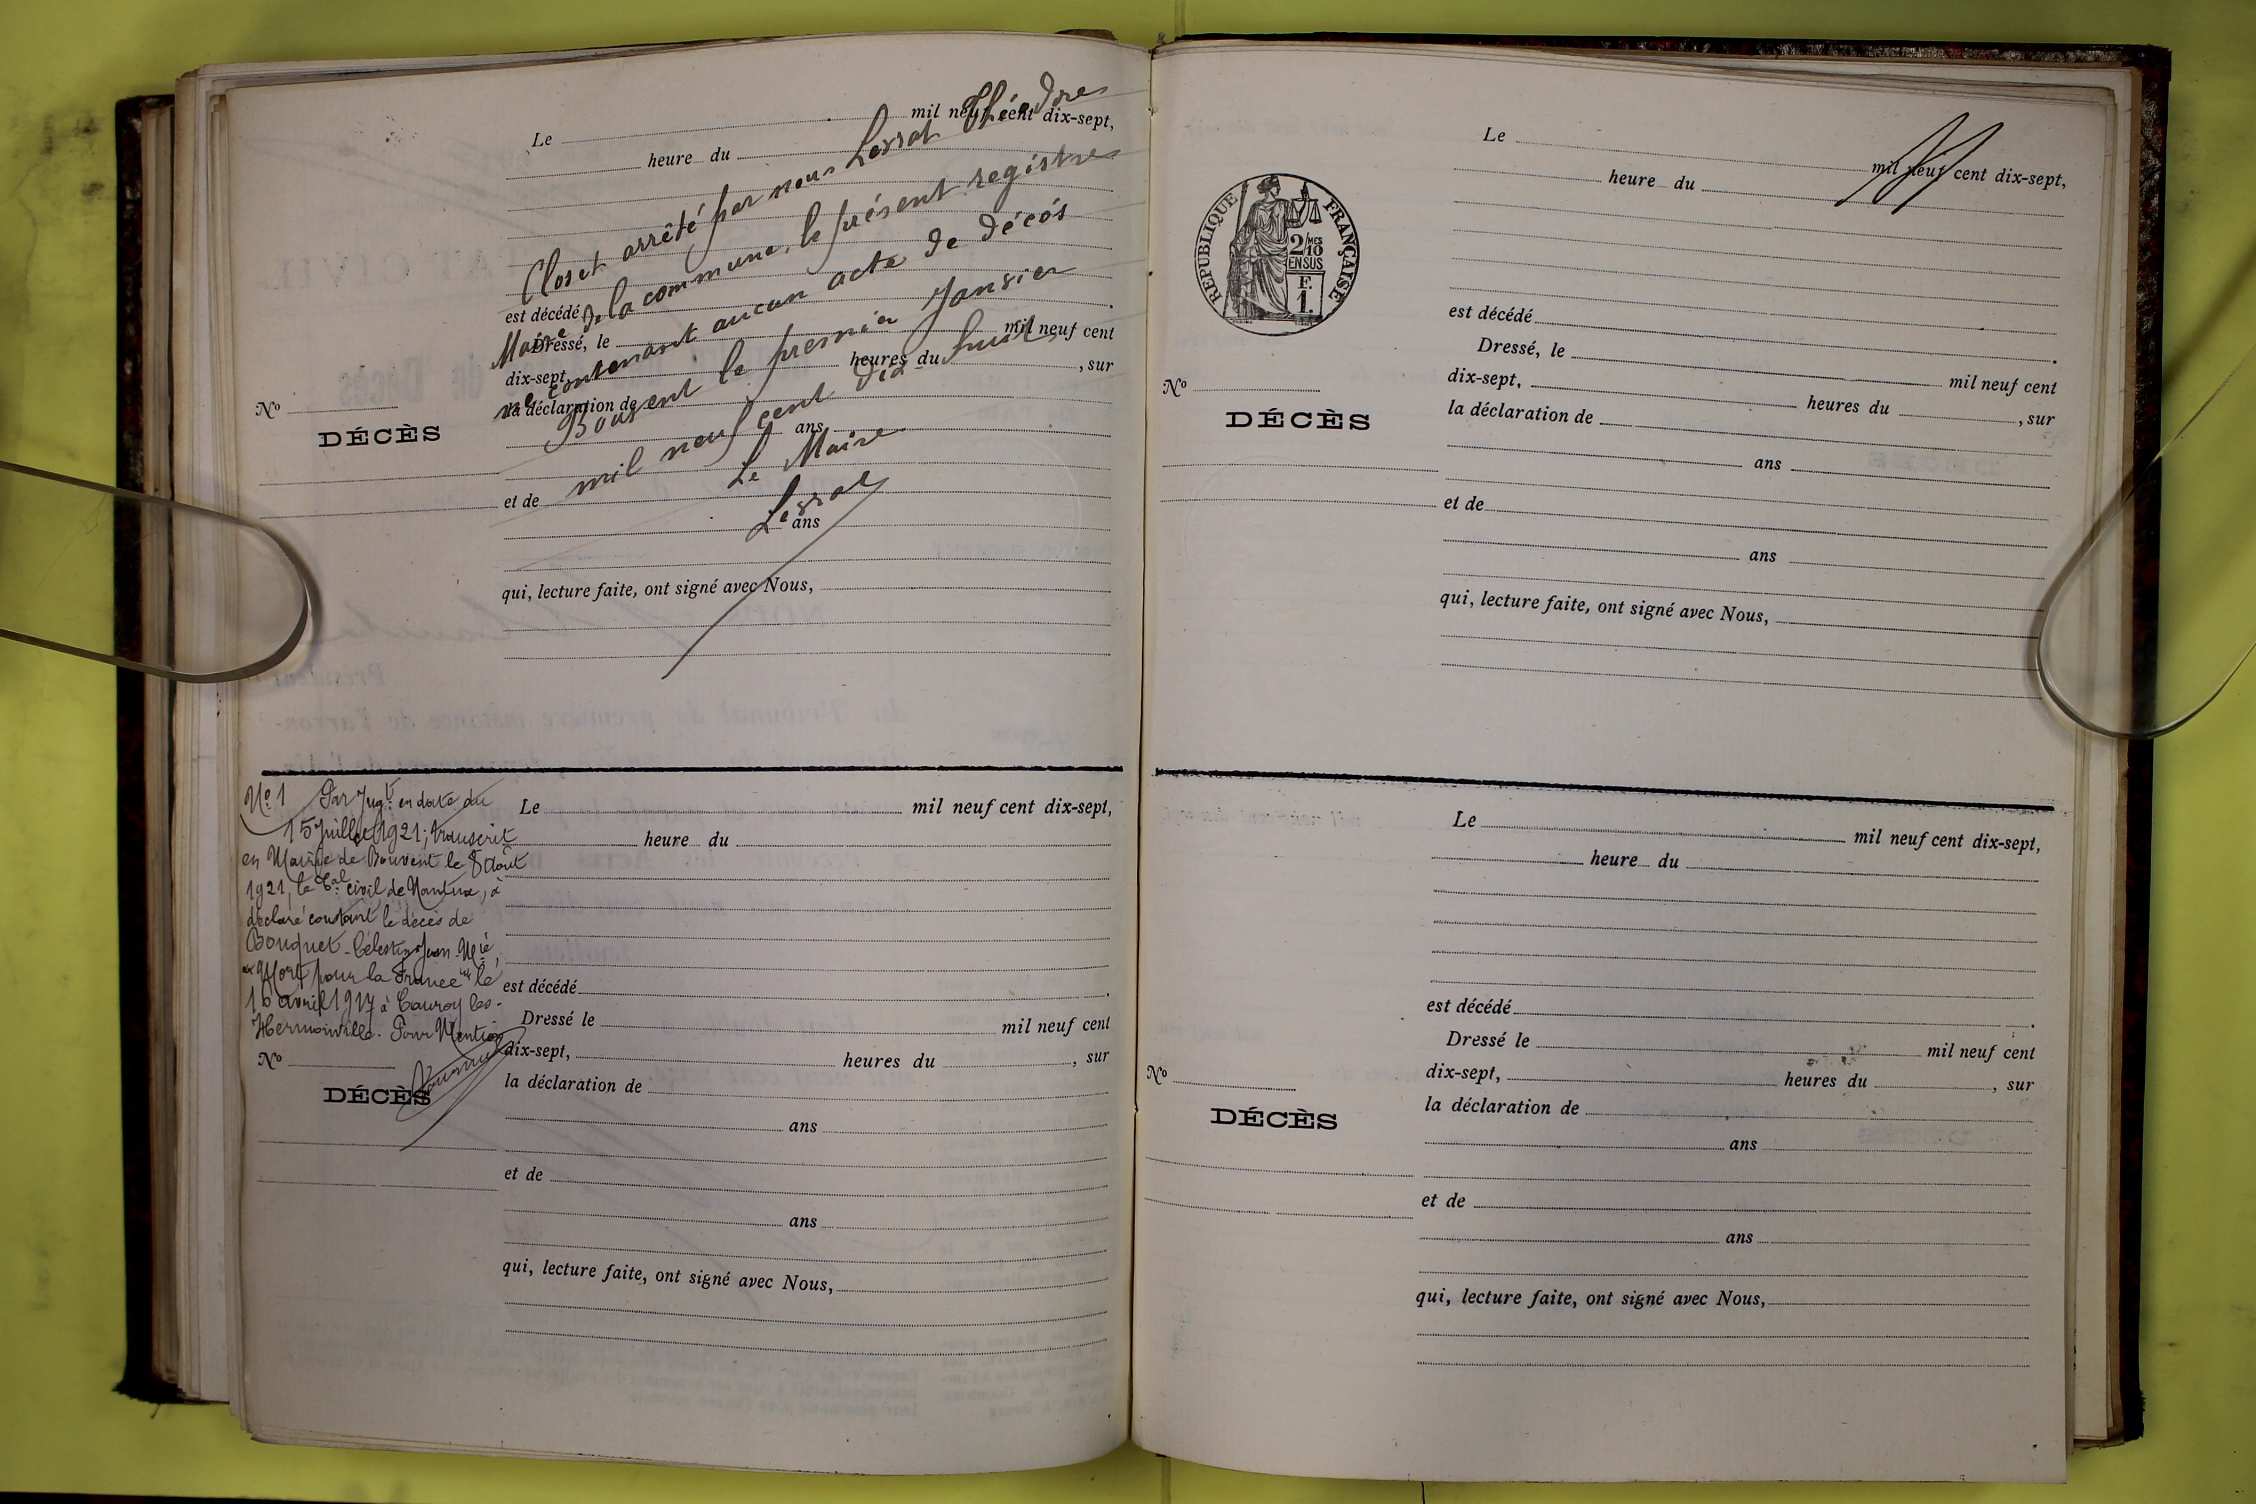 Le mil neuf cent dix-sept,
heure du
Closet arrêté par nous Lerrat Théodre
Maire de la commune, le présent registre
ne contenant aucun acte de décès
Bouvent le premier Janvier
mil neuf cent dix huit
Le Maire
Lerrat
est décédé
Dressé, le mil neuf cent
dix-sept, heures du , sur
la déclaration de
ans
et de
ans
qui, lecture faite, ont signé avec Nous,
No
DÉCÈS
No 1 Par Jugt en date du
15 Juillet 1921, transcrit
en Mairie de Bouvent le 8 Août
1921, le Tal civil de Nantua, a
déclaré constant le décès de
Bouquet Célestin Jean Mie,
"Mort pour la France" le
16 avril 1917 à Cauroy les-
Hermonville. Pour Mention
No
DÉCÈS
Le mil neuf cent dix-sept,
heure du
est décédé
Dressé le mil neuf cent
dix-sept, heures du , sur
la déclaration de
ans
et de
ans
qui, lecture faite, ont signé avec Nous,
RÉPUBLIQUE FRANÇAISE
2/MES
10
EN SUS
F.
1.
No
DÉCÈS
Le mil neuf cent dix-sept,
heure du
est décédé
Dressé, le mil neuf cent
dix-sept, heures du , sur
la déclaration de
ans
et de
ans
qui, lecture faite, ont signé avec Nous,
No
DÉCÈS
Le mil neuf cent dix-sept,
heure du
est décédé
Dressé le mil neuf cent
dix-sept, heures du , sur
la déclaration de
ans
et de
ans
qui, lecture faite, ont signé avec Nous,